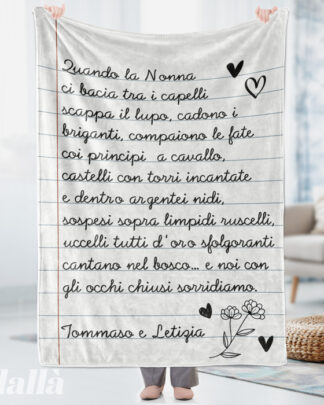 Quando la Nonna
ci bacia tra i capelli
scappa il lupo, cadono i
briganti, compaiono le fate
coi principi a cavallo,
castelli con torri incantate
e dentro argentei nidi,
sospesi sopra limpidi ruscelli,
uccelli tutti d'oro sfolgoranti
cantano nel bosco... e noi con
gli occhi chiusi sorridiamo.
Tommaso e Letizia